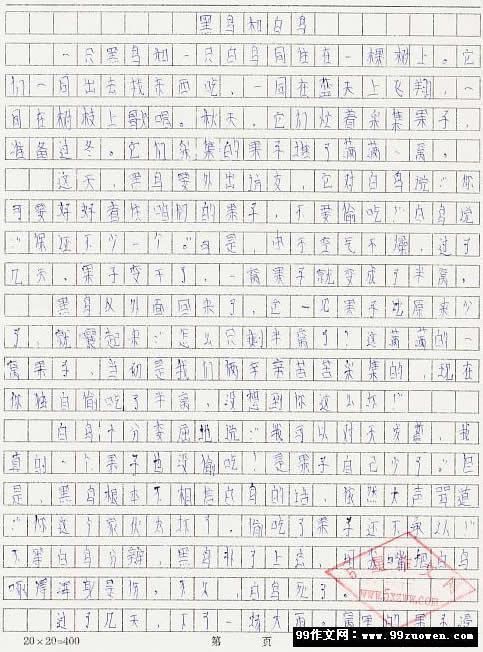 黑鸟和白鸟
一只黑鸟和一只白鸟同住在一棵树上。它
们一同出去找东西吃，一同在蓝天上飞翔，一
同在树枝上歌唱。秋天，它们忙着采集果子，
准备过冬。它们采集的果子堆了满满一窝。
这天，黑鸟要外出访友，它对白鸟说：“你
可要好好看住咱们的果子，不要偷吃。”白鸟说
：“保证不少一个。”可是，由于空气干燥，过了
几天，果子变干了，一窝果子就变成了半窝。
黑鸟从外面回来了，它一见果子比原来少
了，就嚷起来：“怎么只剩半窝了？这满满的一
窝果子，当初是我们俩辛辛苦苦采集的，现在
你独自偷吃了半窝，没想到你这么坏！”
白鸟十分委屈地说：“我可以对天发誓，我
真的一个果子也没偷吃？是果子自己少了。”但
是，黑鸟根本不相信白鸟的话，依然大声骂道
：“你这个家伙太坏了，偷吃了果子还不承认！”
不等白鸟分辩，黑鸟扑了上去，用 嘴把白鸟
啄得浑身是伤。不久，白鸟死了。
过了几天，下了一场大雨。窝里的果子浸
20×20=400 第 页
www.5xzww.com
99作文网：www.99zuowen.com